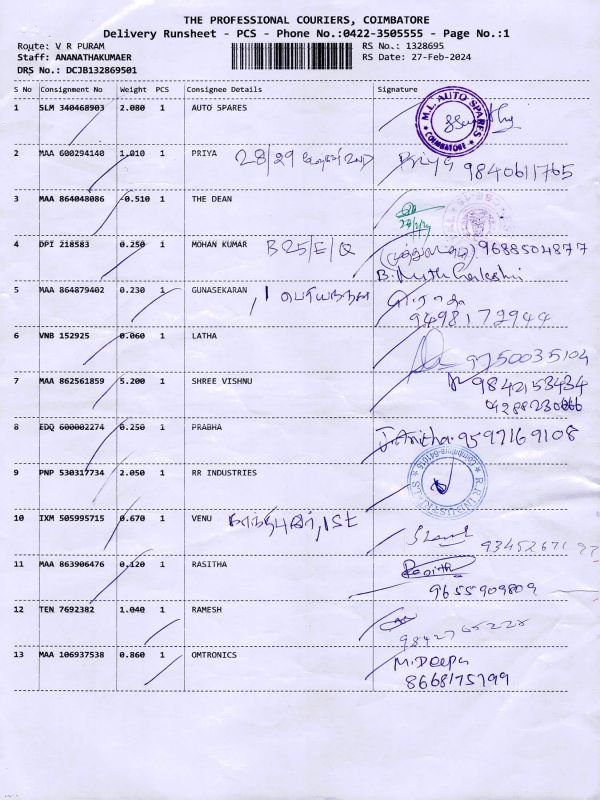 THE PROFESSIONAL COURIERS, COIMBATORE
Delivery Runsheet - PCS - Phone No.:0422-3505555 - Page No.:1
Route: V R PURAM
RS No.: 1328695
Staff: ANANATHAKUMAER
RS Date: 27-Feb-2024
DRS No.: DCJB132869501
S No Consignment No Weight PCS Consignee Details Signature
1 SLM 340468903 2.080 1 AUTO SPARES
M.L. AUTO SPARES COIMBATORE
2 MAA 600294140 1.010 1 PRIYA 28/29 2ND Priya 9840611765
3 MAA 864048086 -0.510 1 THE DEAN
4 DPI 218583 0.250 1 MOHAN KUMAR B25/E/Q 9688504877
5 MAA 864879402 0.230 1 GUNASEKARAN
9498172944
6 VNB 152925 0.060 1 LATHA 9750035104
7 MAA 862561859 5.200 1 SHREE VISHNU 9842153434
8 EDQ 600002274 0.250 1 PRABHA J. Anitha 9597169108
9 PNP 530317734 2.050 1 RR INDUSTRIES
R.R. INDUSTRIES
10 IXM 505995715 0.670 1 VENU
11 MAA 863906476 0.120 1 RASITHA Rasitha
9655909809
12 TEN 7692382 1.040 1 RAMESH
13 MAA 106937538 0.860 1 OMTRONICS M. Deepa
8668175799